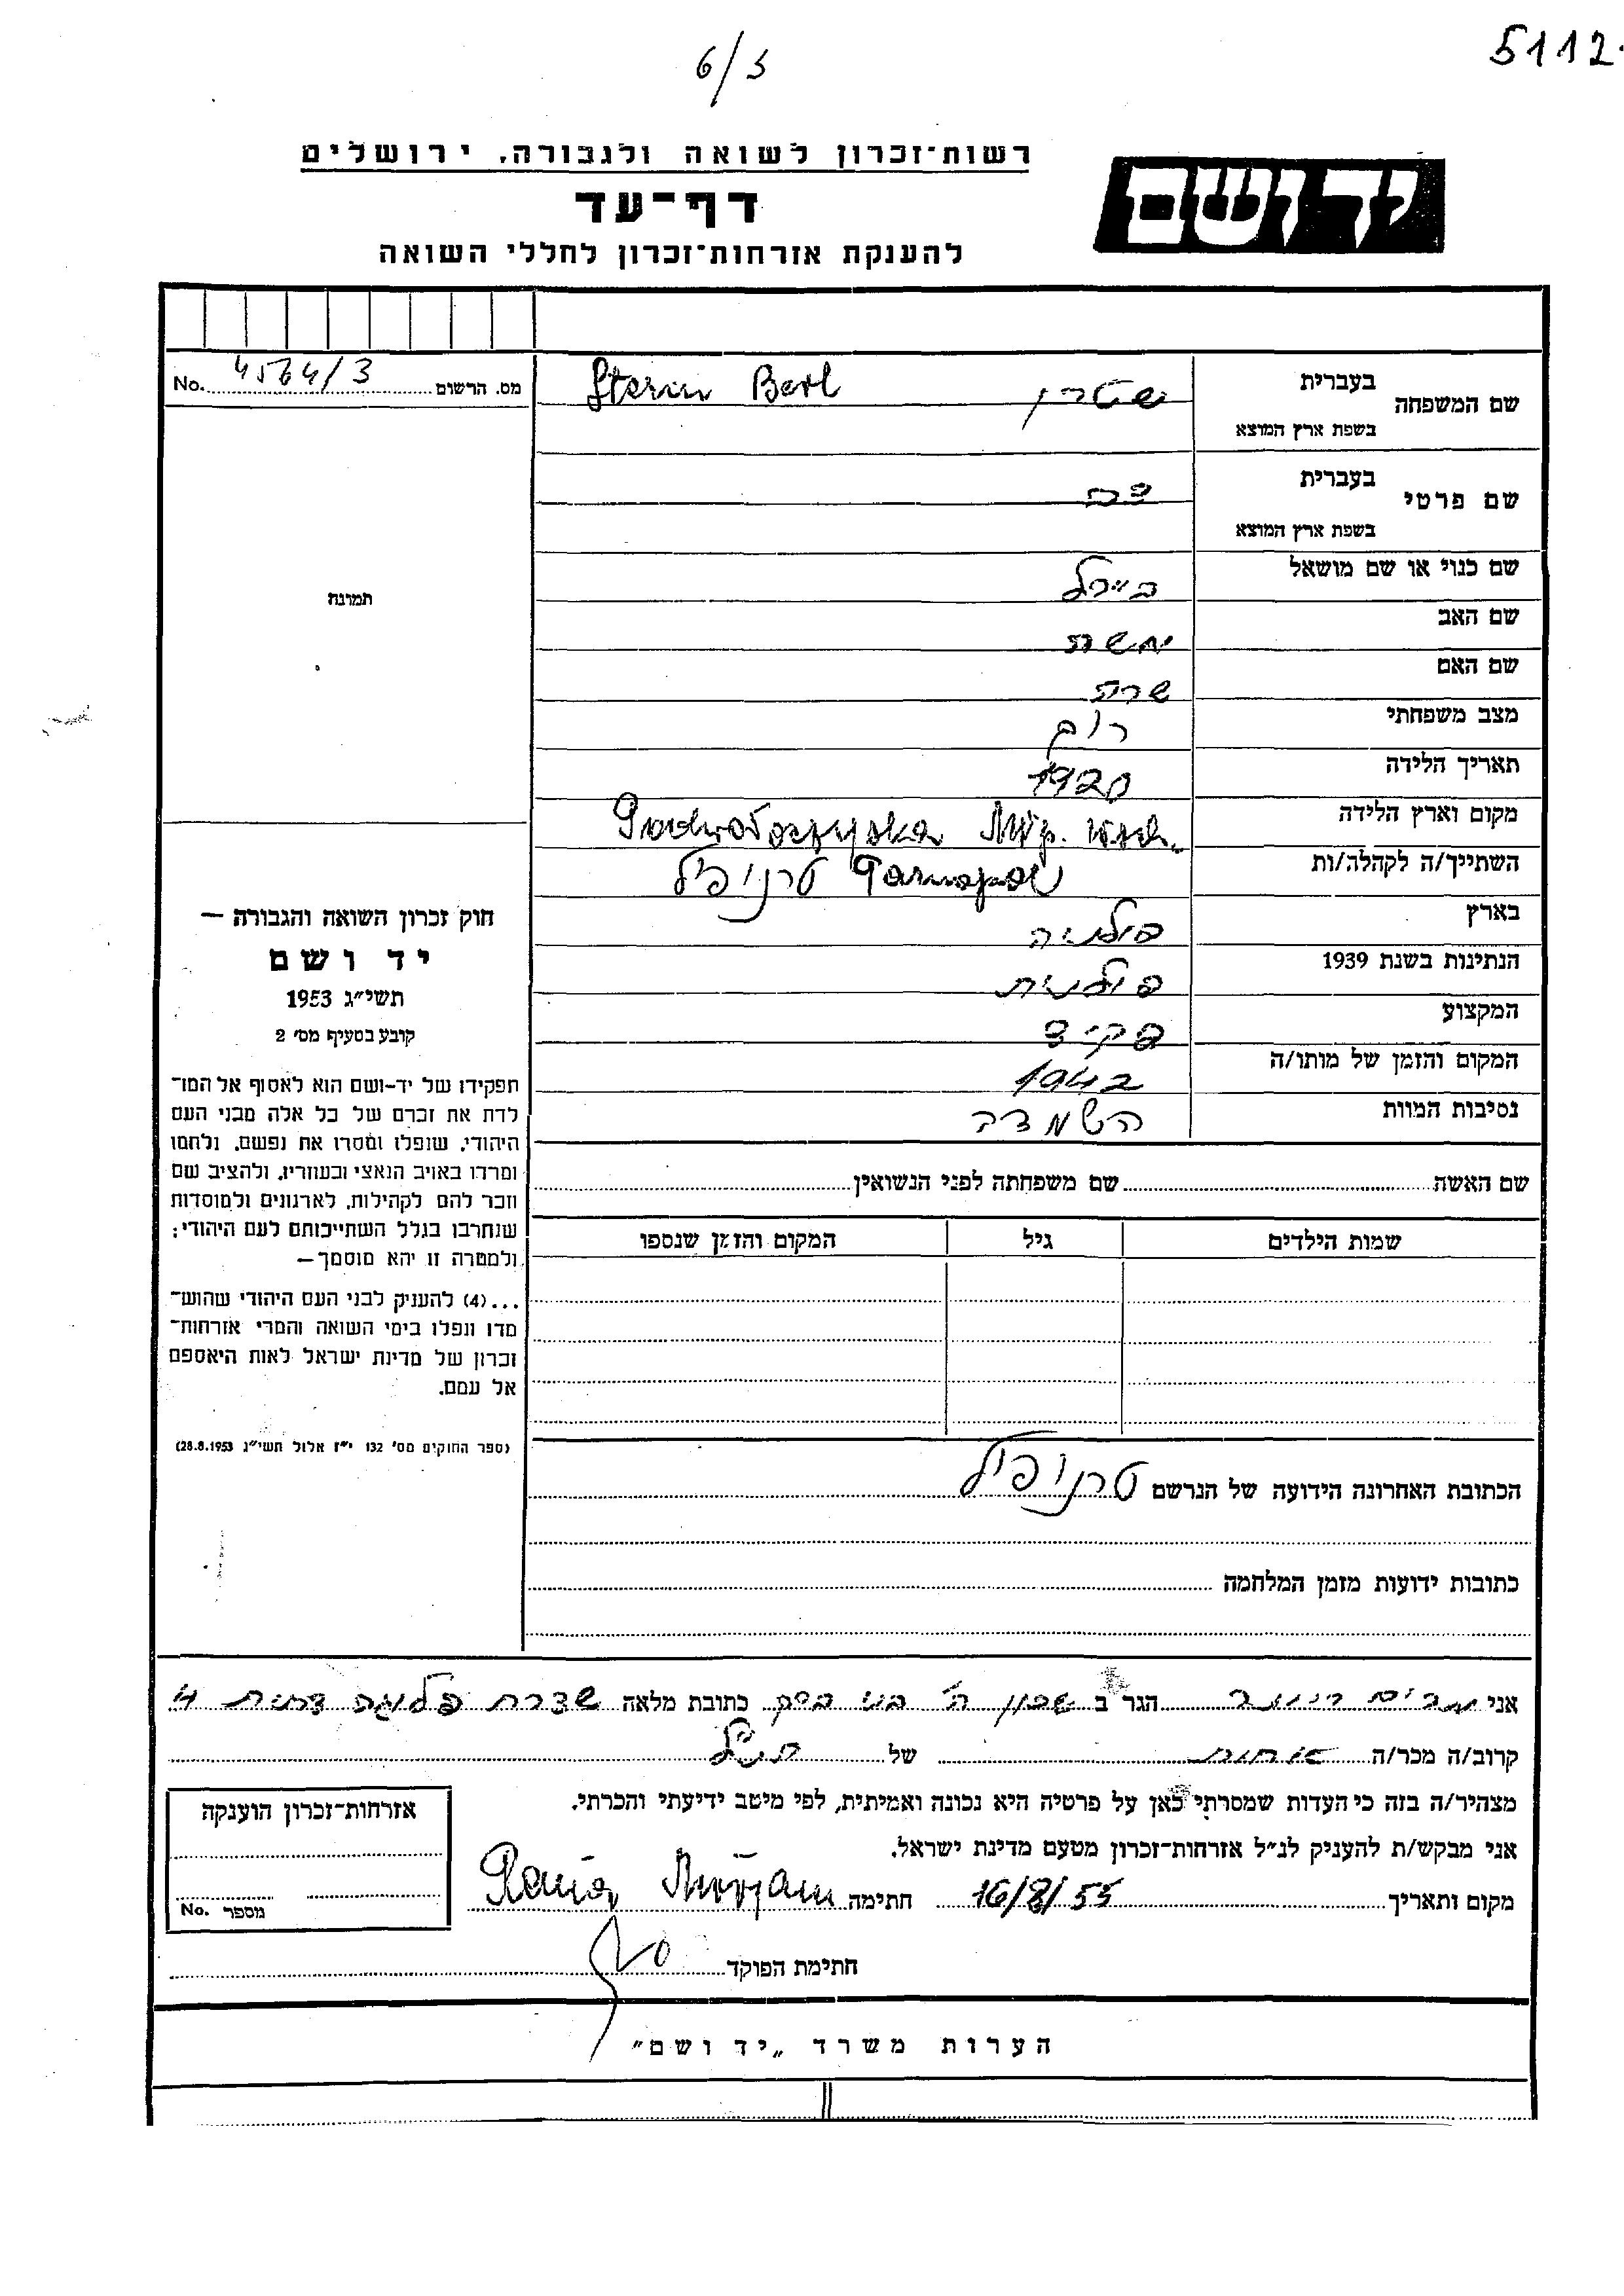 6/3
5112
רשות־זכרון לשואה ולגבורה, ירושלים
יד ושם
דף־עד
להענקת אזרחות־זכרון לחללי השואה
No. 4564/3 מס. הרשום
שם המשפחה
בעברית שטרן Stern Berl
בשפת ארץ המוצא
שם פרטי
בעברית
בשפת ארץ המוצא
שם כנוי או שם מושאל בײרל
שם האב משה
שם האם שרה
מצב משפחתי רוק
תאריך הלידה 1920
מקום וארץ הלידה Podwołoczyska Młp. wsch.
השתייך/ה לקהלה/ות Tarnopol טרנופיל
בארץ פולניה
הנתינות בשנת 1939 פולנית
המקצוע פקיד
המקום והזמן של מותו/ה 1942
נסיבות המוות השמדה
תמונה
חוק זכרון השואה והגבורה —
יד ושם
תשי״ג 1953
קובע בסעיף מס׳ 2
תפקידו של יד-ושם הוא לאסוף אל המו־
לדת את זכרם של כל אלה מבני העם
היהודי, שנפלו ומסרו את נפשם, נלחמו
ומרדו באויב הנאצי ובעוזריו, ולהציב שם
וזכר להם לקהילות, לארגונים ולמוסדות
שנחרבו בגלל השתייכותם לעם היהודי;
ולמטרה זו יהא מוסמך—
...(4) להעניק לבני העם היהודי שהוש־
מדו ונפלו בימי השואה והמרי אזרחות־
זכרון של מדינת ישראל לאות היאספם
אל עמם.
(ספר החוקים מס׳ 132 י״ז אלול תשי״ג 28.8.1953)
שם האשה שם משפחתה לפני הנשואין
שמות הילדים גיל המקום והזמן שנספו
הכתובת האחרונה הידועה של הנרשם טרנופיל
כתובות ידועות מזמן המלחמה
אני מרים הגר ב שכון ה׳ בני ברק כתובת מלאה שדרת דירות 4
קרוב/ה מכר/ה אחות של הנ״ל
מצהיר/ה בזה כי העדות שמסרתי כאן על פרטיה היא נכונה ואמיתית, לפי מיטב ידיעתי והכרתי.
אני מבקש/ת להעניק לנ״ל אזרחות־זכרון מטעם מדינת ישראל.
מקום ותאריך 16/8/55 חתימה
חתימת הפוקד
אזרחות־זכרון הוענקה
No. מספר
הערות משרד „יד ושם״